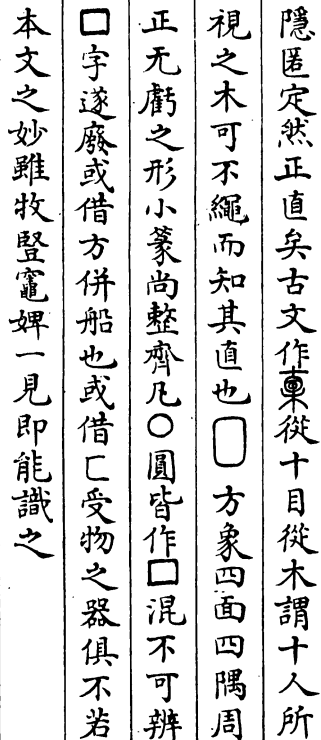 隱匿定然正直矣古文作𣕌從十目從木謂十人所
視之木可不繩而知其直也▢方象四面四隅周
正无虧之形小篆尚整齊凡○圓皆作□混不可辨
□字遂廢或借方併船也或借匚受物之器俱不若
本文之妙雖牧豎竈婢一見即能識之